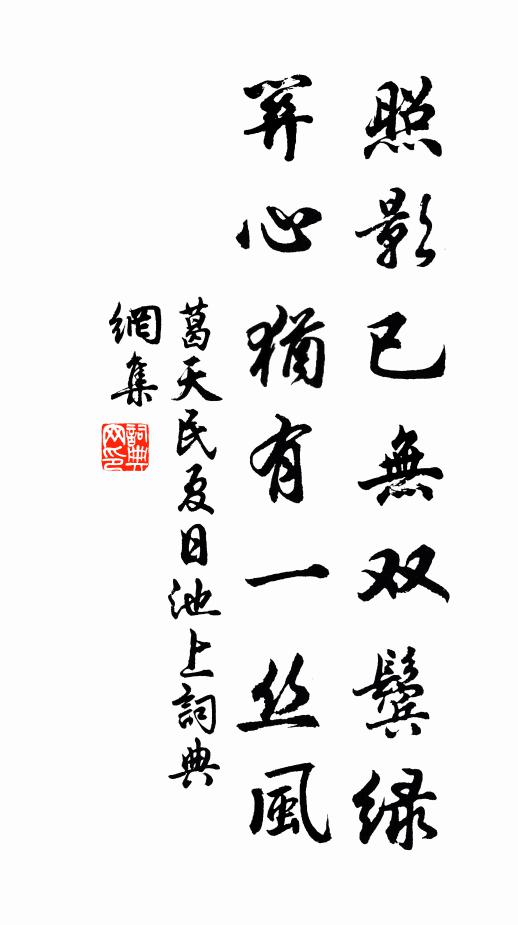 照影已無双鬓绿
關心猶有一丝風
葛天民夏日池上詞典
網集
詞典
网印